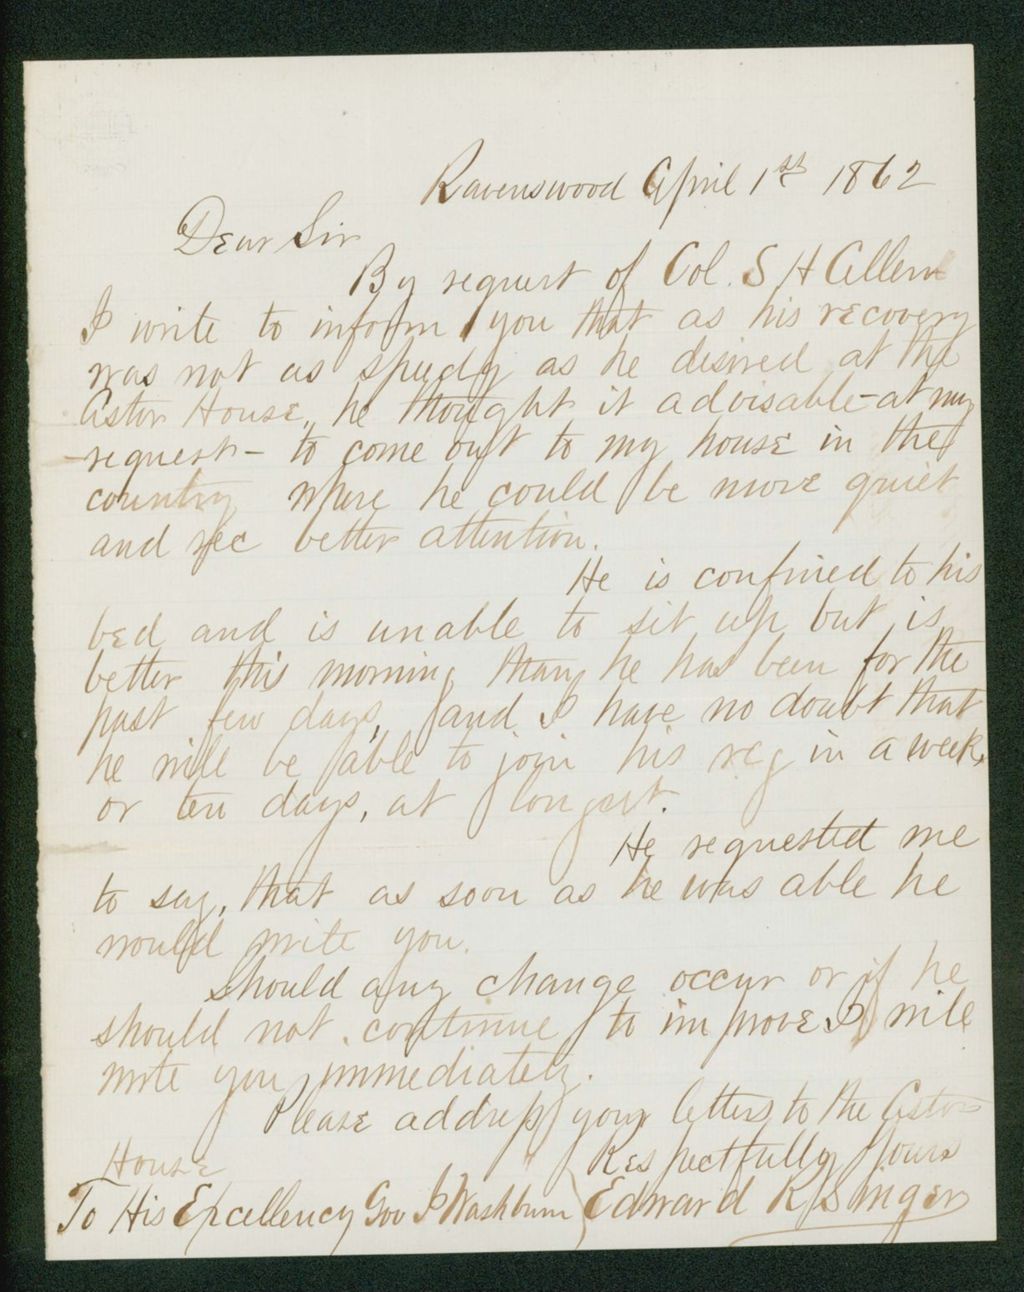 Ravenswood April 1st 1862
Dear Sir
By request of Col. S H Allen
I write to inform you that as his recovery
was not as speedy as he desired at the
Astor House, he thought it advisable - at my
- request - to come out to my house in the
country where he could be more quiet
and rec better attention.
He is confined to his
bed and is unable to sit up but is
better this morning than he has been for the
past few days, and I have no doubt that
he will be able to join his reg in a week,
or ten days, at longest.
He requested me
to say, that as soon as he was able he
would write you.
Should any change occur or if he
should not continue to improve I will
write you immediately.
Please address your letters to the Astor
House
Respectfully Yours
To His Excellency Gov I Washburn Edward R